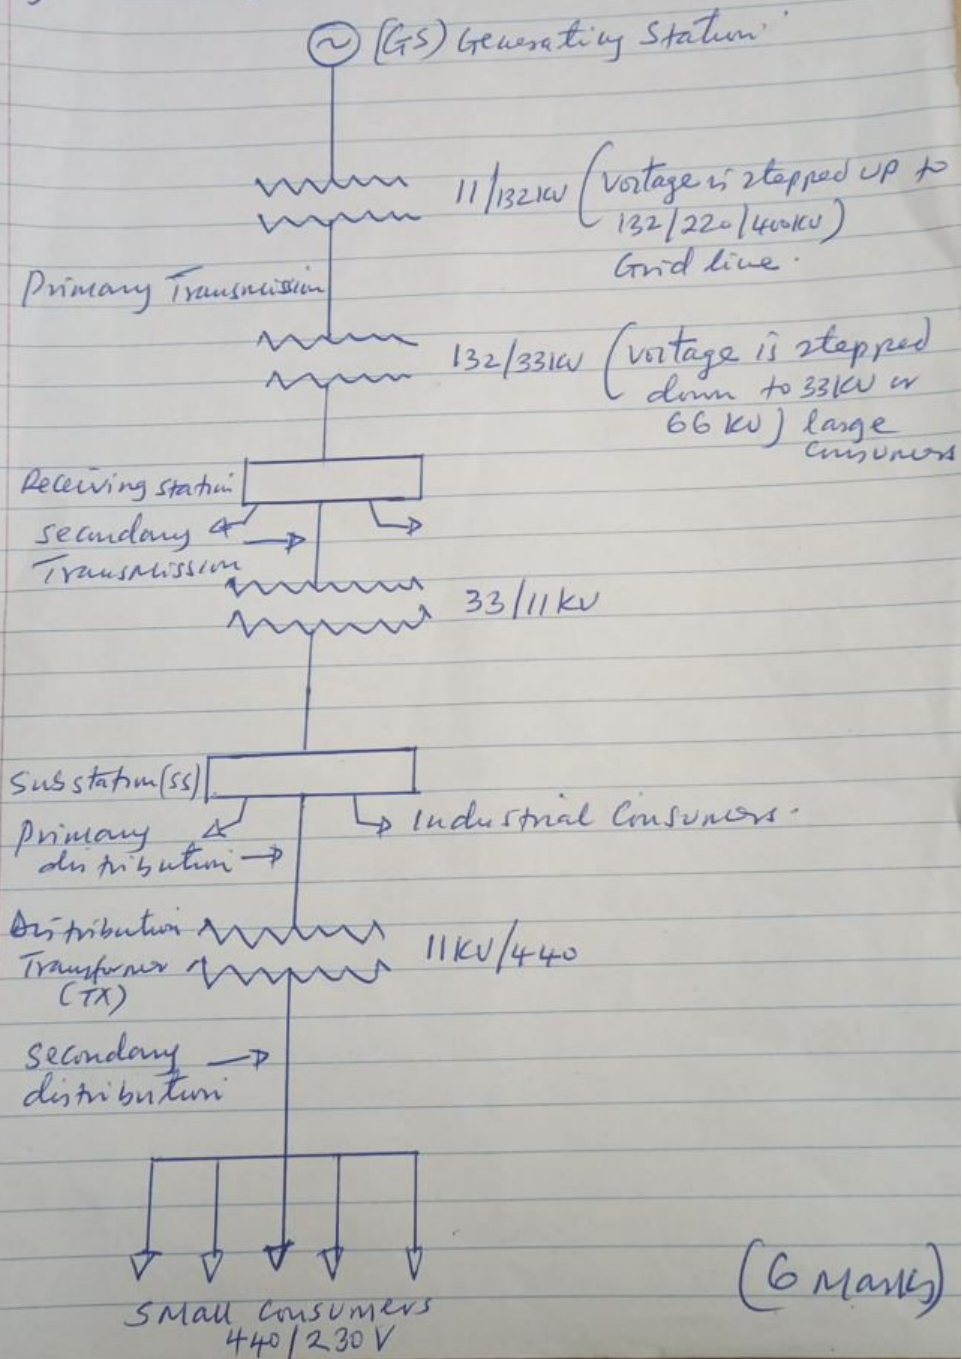 (GS) Generating Station
11/132KV (Voltage is stepped up to
132/220/400KV)
Grid line.
Primary Transmission
132/33KV (Voltage is stepped
down to 33KV or
66KV) large
Consumers
Receiving station
Secondary
Transmission
33/11KV
Substation(SS)
Industrial Consumers.
Primary
distribution
Distribution
Transformer
(TX)
11KV/440
Secondary
distribution
Small Consumers
440/230V
(6 Marks)